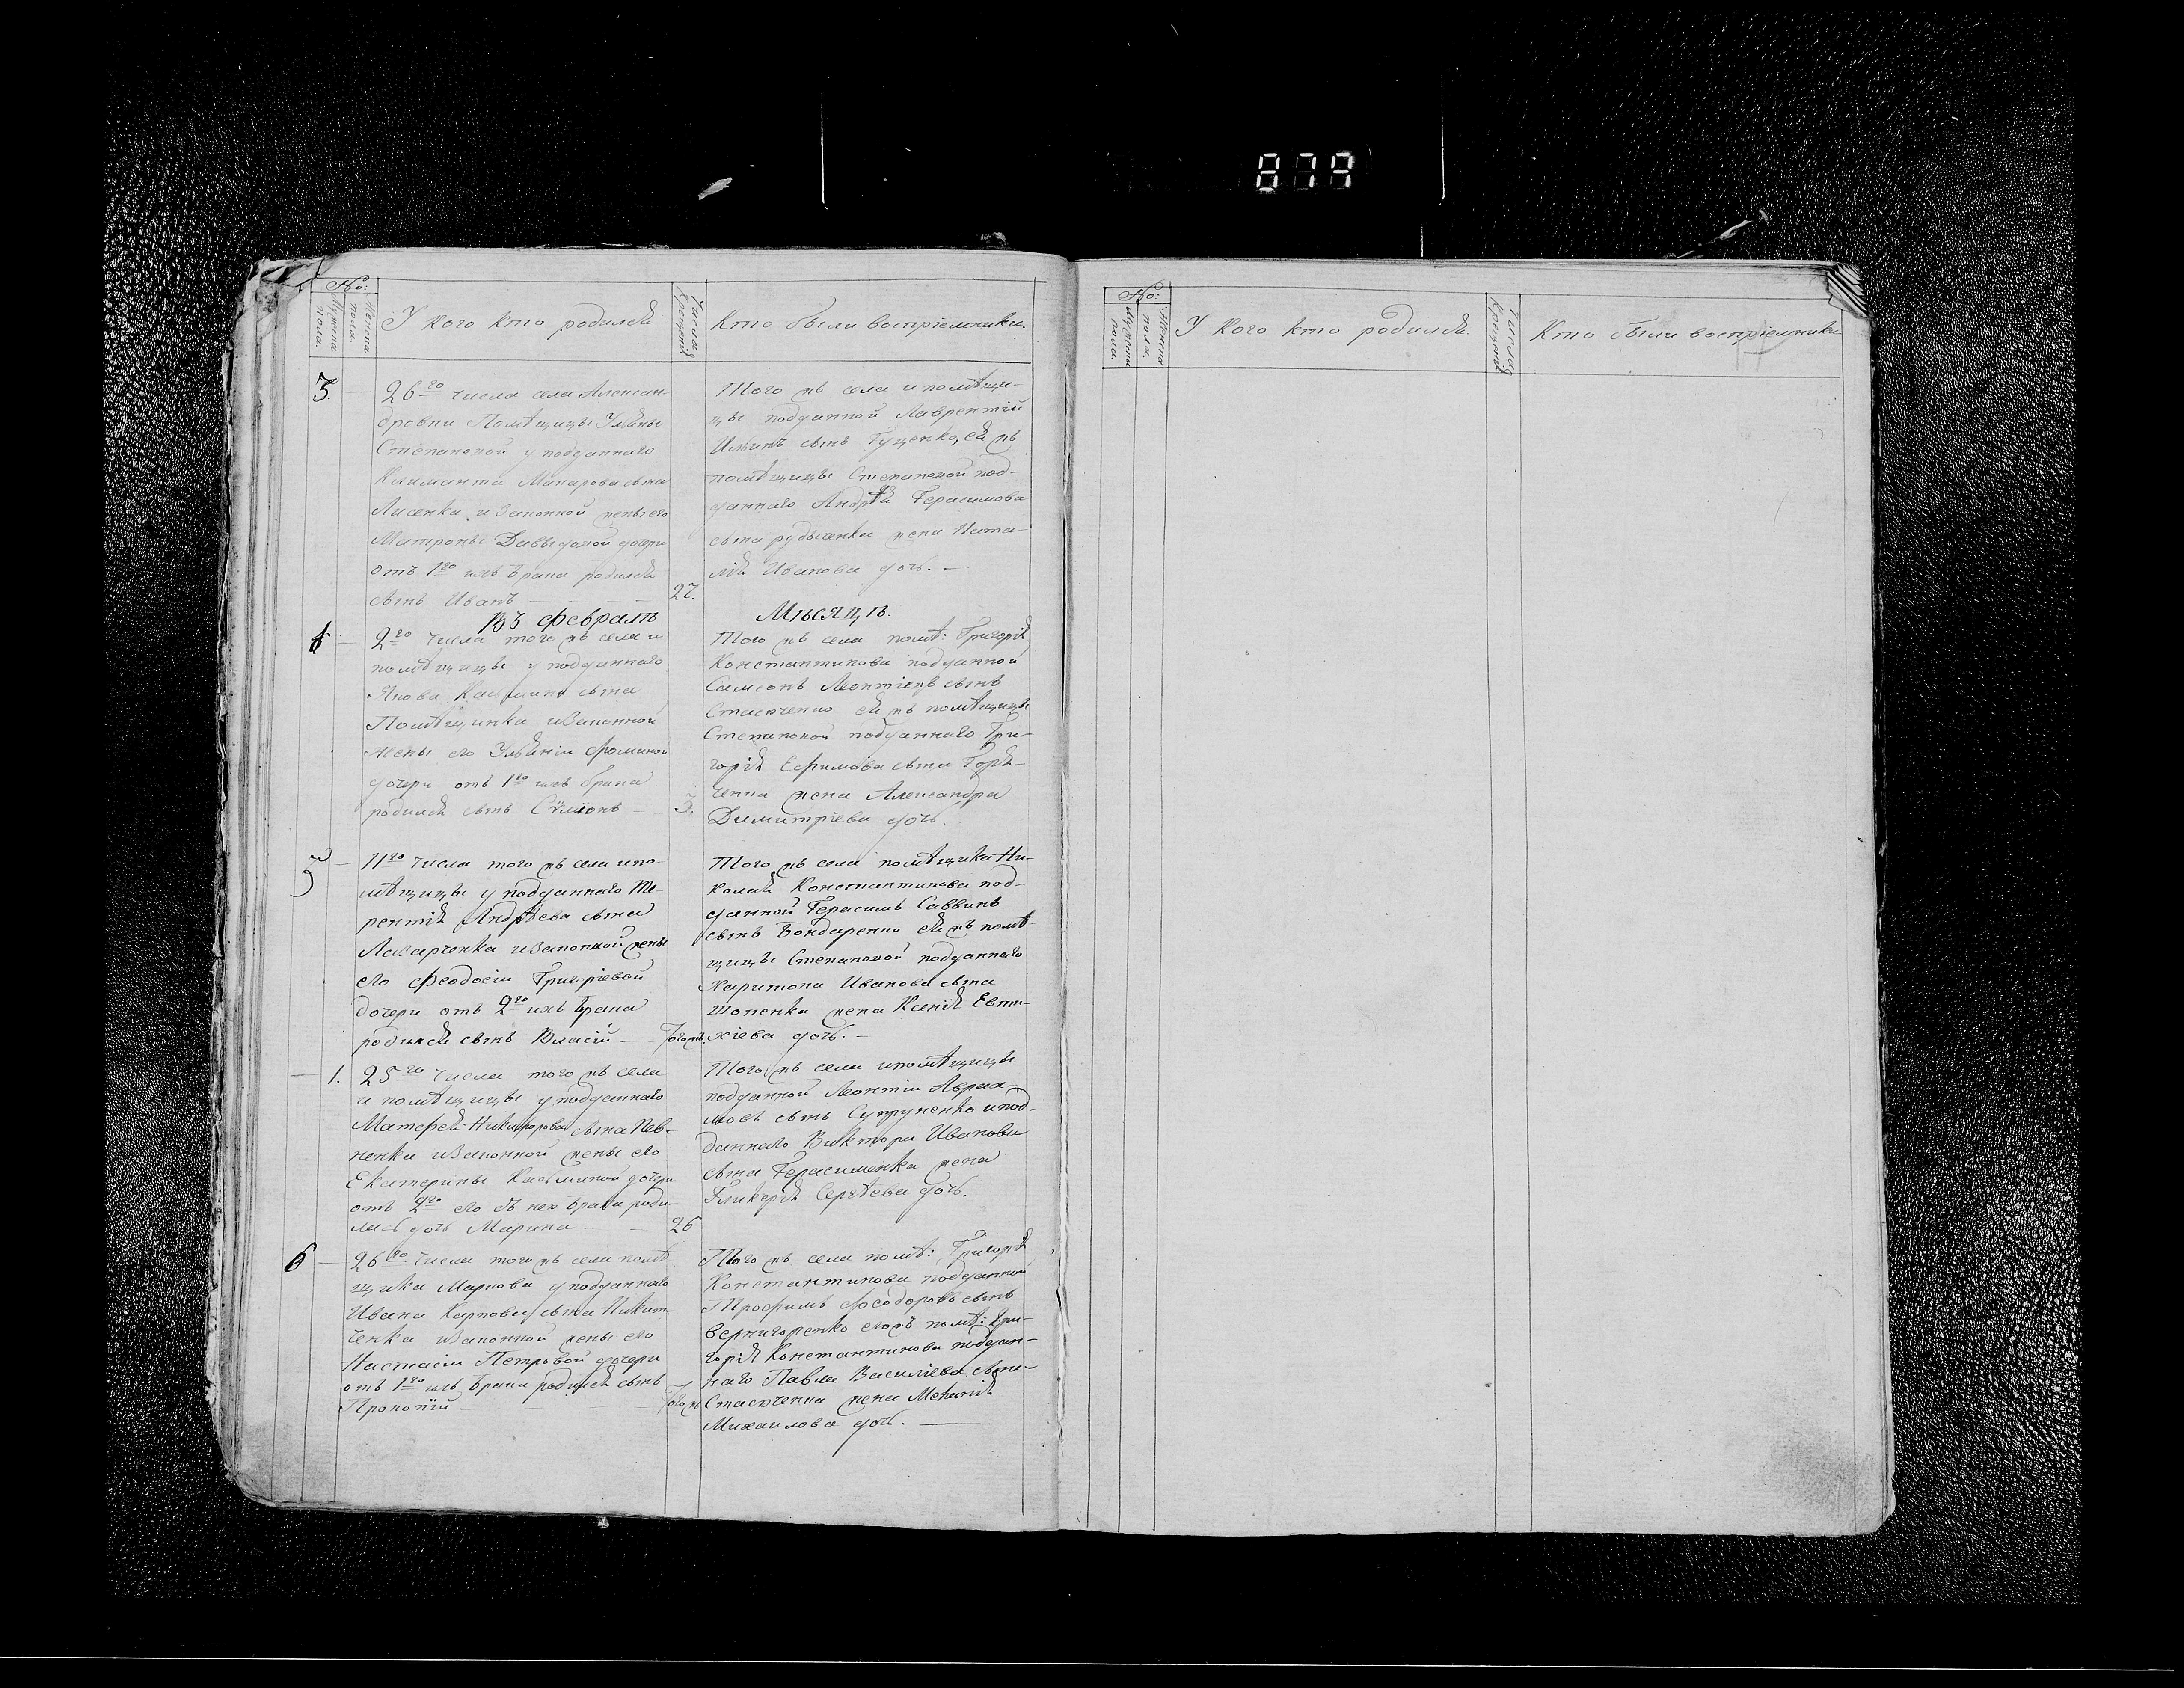 879
№:
Мужеска пола.
Женска пола.
У кого кто родился
Числа Крещенія
Кто были воспріемники.
3.
26го числа села Алексан-
дровки Помѣщицы Ульяны
Степановой у подданнаго
Климанта Макарова сына
Лисенка и законной жены его
Матроны Давыдовой дочери
отъ 1го ихъ брака родился
сынъ Иванъ
27.
Того жъ села и помѣщи-
цы подданной Лаврентій
Ильинъ сынъ Гуценко, ея жъ
помѣщицы Степановой под-
даннаго Андрѣя Герасимова
сына рудыченка жена Ната-
лія Иванова дочь. —
Въ Февралѣ Мѣсяцѣ.
4
2го числа того жъ села и
помѣщицы у подданнаго
Якова Касьмина сына
Помѣщинка и законной
жены его Ульяніи Фоминой
дочери отъ 1го ихъ брака
родился сынъ Сѵмеонъ
3.
Того жъ села помѣ: Григорія
Константинова подданной
Самсонъ Леонтіевъ сынъ
Стасюченко ея жъ помѣщицы
Степановой подданнаго Гри-
горія Ефимова сына Горя-
ченка жена Александра
Димитріева дочь.
5
11го числа того жъ села и по-
мѣщицы у подданнаго Те-
рентія Андрѣева сына
Лазарченка и законной жены
его Феодосіи Григоріевой
дочери отъ 2го ихъ брака
родился сынъ Власій —
того жъ.
Того жъ села помѣщика Ни-
колая Константинова под-
данной Герасимъ Саввинъ
сынъ Бондаренко ея жъ помѣ-
щицы Степановой подданнаго
Харитона Иванова сына
Шопенка жена Ксенія Евти-
хіева дочь. —
1.
25го числа того жъ села
и помѣщицы у подданнаго
Матфея Никифорова сына Пев-
ненка и законной жены его
Екатерины Касьминой дочери
отъ 2го его съ нею брака роди-
лась дочь Марина
26
Того жъ села и помѣщицы
подданной Леонтій Абрам-
мовъ сынъ Супруненко и под-
даннаго Виктора Иванова
сына Герасименка жена
Гликерія Сергѣева дочь.
6
26го числа того жъ села помѣ
щика Маркова у подданнаго
Ивана Карпова сына Никит-
ченка и законной жены его
Настасіи Петровой дочери
отъ 1го ихъ брака родился сынъ
Прокопій —
того жъ
Того жъ села помѣ: Григорія
Константинова подданной
Трофимъ Феодоровъ сынъ
Вернигоренко его жъ помѣ: Гри-
горія Константинова поддан-
наго Павла Василіева сына
Стасюченка жена Меланія
Михаилова дочь. —
№:
Мужеска пола.
Женска пола.
У кого кто родился.
Число Крещенія
Кто были воспріемники